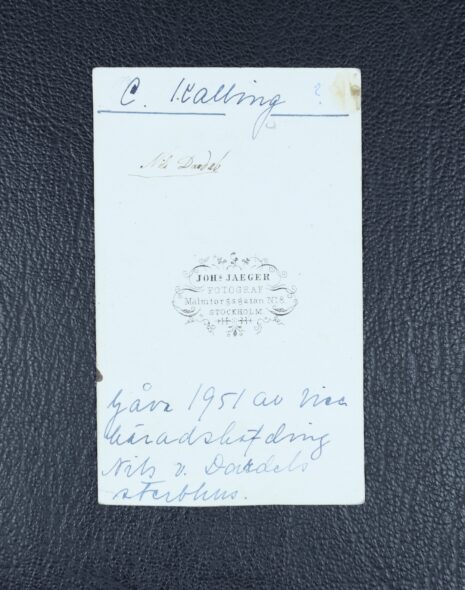 C. Kalling ?
Nils Dardel
JOHS JAEGER
FOTOGRAF
Malmtorgsgatan No 8.
STOCKHOLM
Gåva 1951 av vice
häradshöfding
Nils v. Dardels
sterbhus.